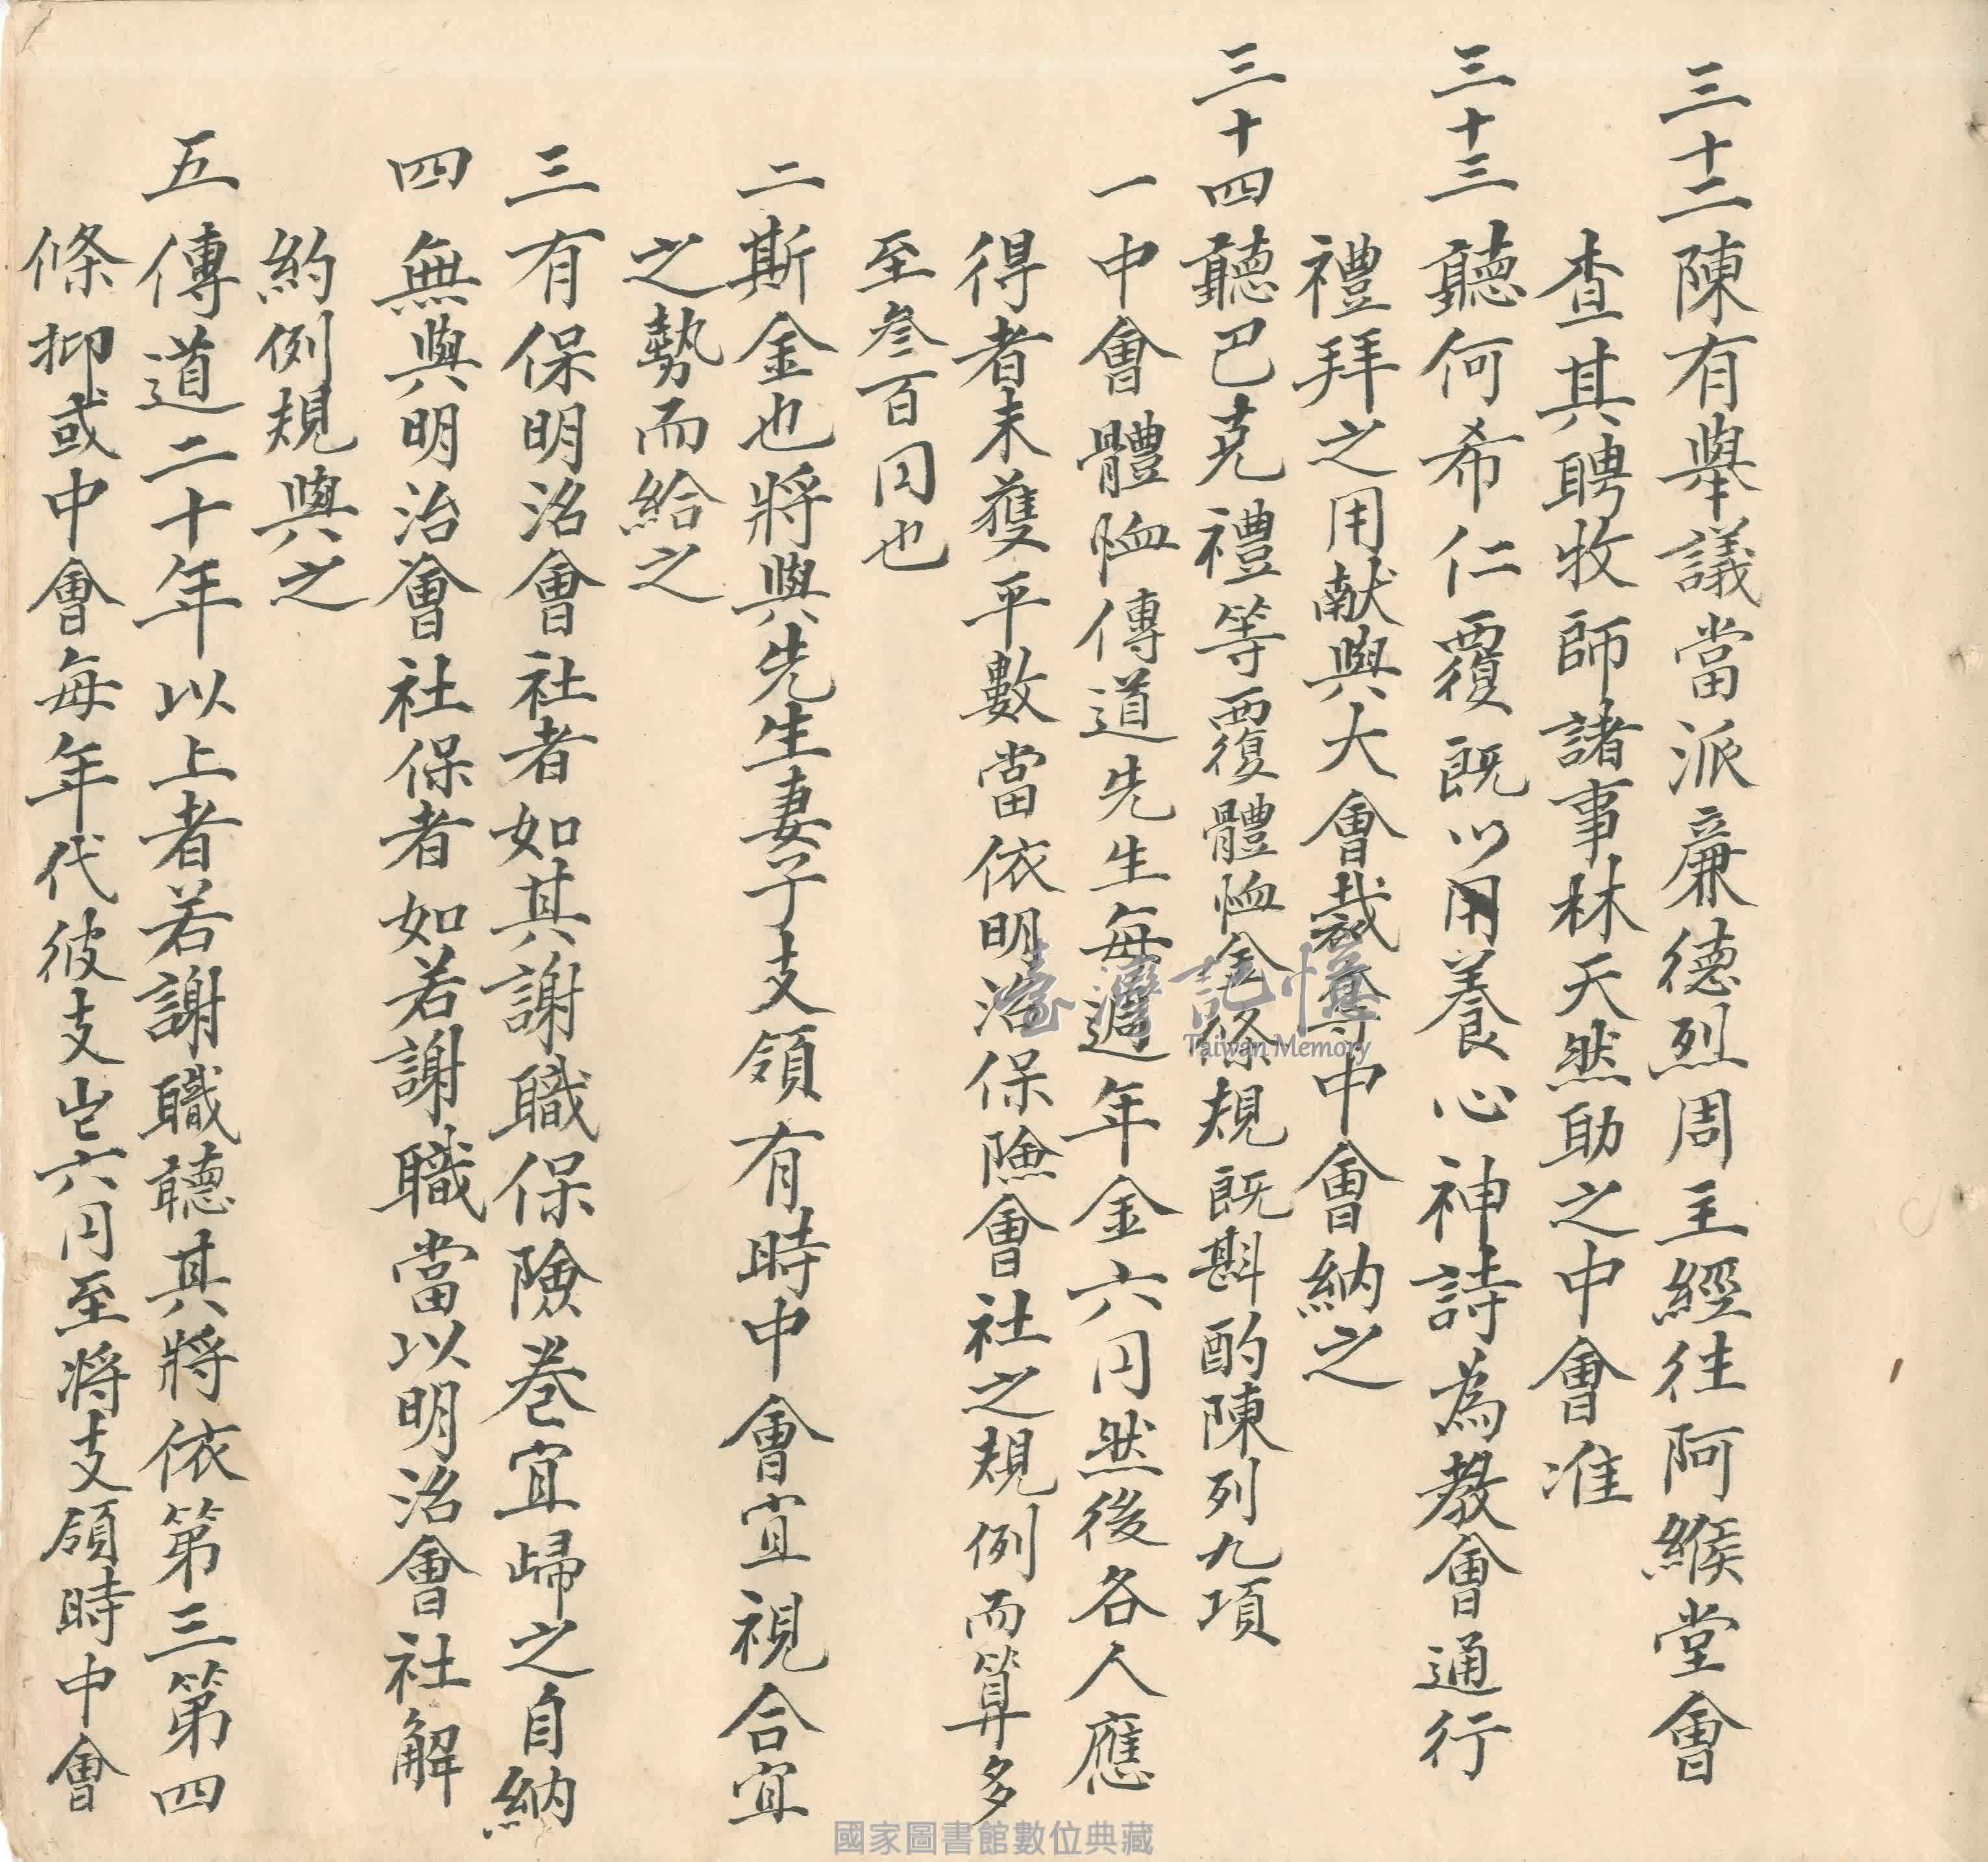 三十二陳有舉議當派廉德烈周主經往阿緱堂會
查其聘牧師諸事林天然助之中會准
三十三聽何希仁覆既以用養心神詩為教會通行
禮拜之用献與大會裁奪中會納之
三十四聽巴克禮等覆體恤金條規既斟酌陳列九項
一中會體恤傳道先生每週年金六円然後各人應
得者未獲平數當依明治保險會社之規例而算多
至叁百円也
二斯金也將與先生妻子支領有時中會宜視合宜
之勢而給之
三有保明治會社者如其謝職保險巻宜歸之自納
四無與明治會社保者如若謝職當以明治會社解
約例規與之
五傳道二十年以上者若謝職聽其將依第三第四
條抑或中會每年代彼支出六円至將支領時中會
臺灣記憶
Taiwan Memory
國家圖書館數位典藏